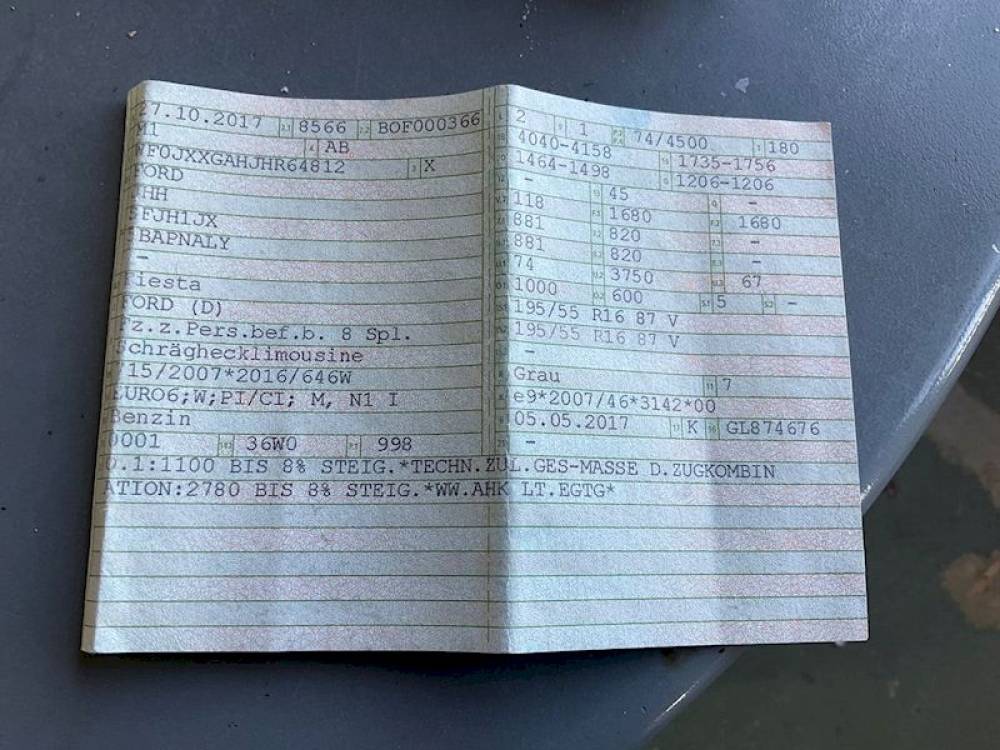 27.10.2017 8566 BOF000366
M1 AB
WF0JXXGAHJHR64812 X
FORD
JHH
5FJH1JX
BAPNALY
-
Fiesta
FORD (D)
Fz.z.Pers.bef.b. 8 Spl.
Schräghecklimousine
715/2007*2016/646W
EURO6;W;PI/CI; M, N1 I
Benzin
0001 36W0 998
2 1 74/4500 180
4040-4158 1735-1756
1464-1498 1206-1206
- 45 -
118 1680 1680
881 820 -
881 820 -
74 3750 67
1000 600 5 -
195/55 R16 87 V
195/55 R16 87 V
-
Grau 7
e9*2007/46*3142*00
05.05.2017 K GL874676
-
O.1:1100 BIS 8% STEIG.*TECHN.ZUL.GES-MASSE D.ZUGKOMBIN
ATION:2780 BIS 8% STEIG.*WW.AHK LT.EGTG*